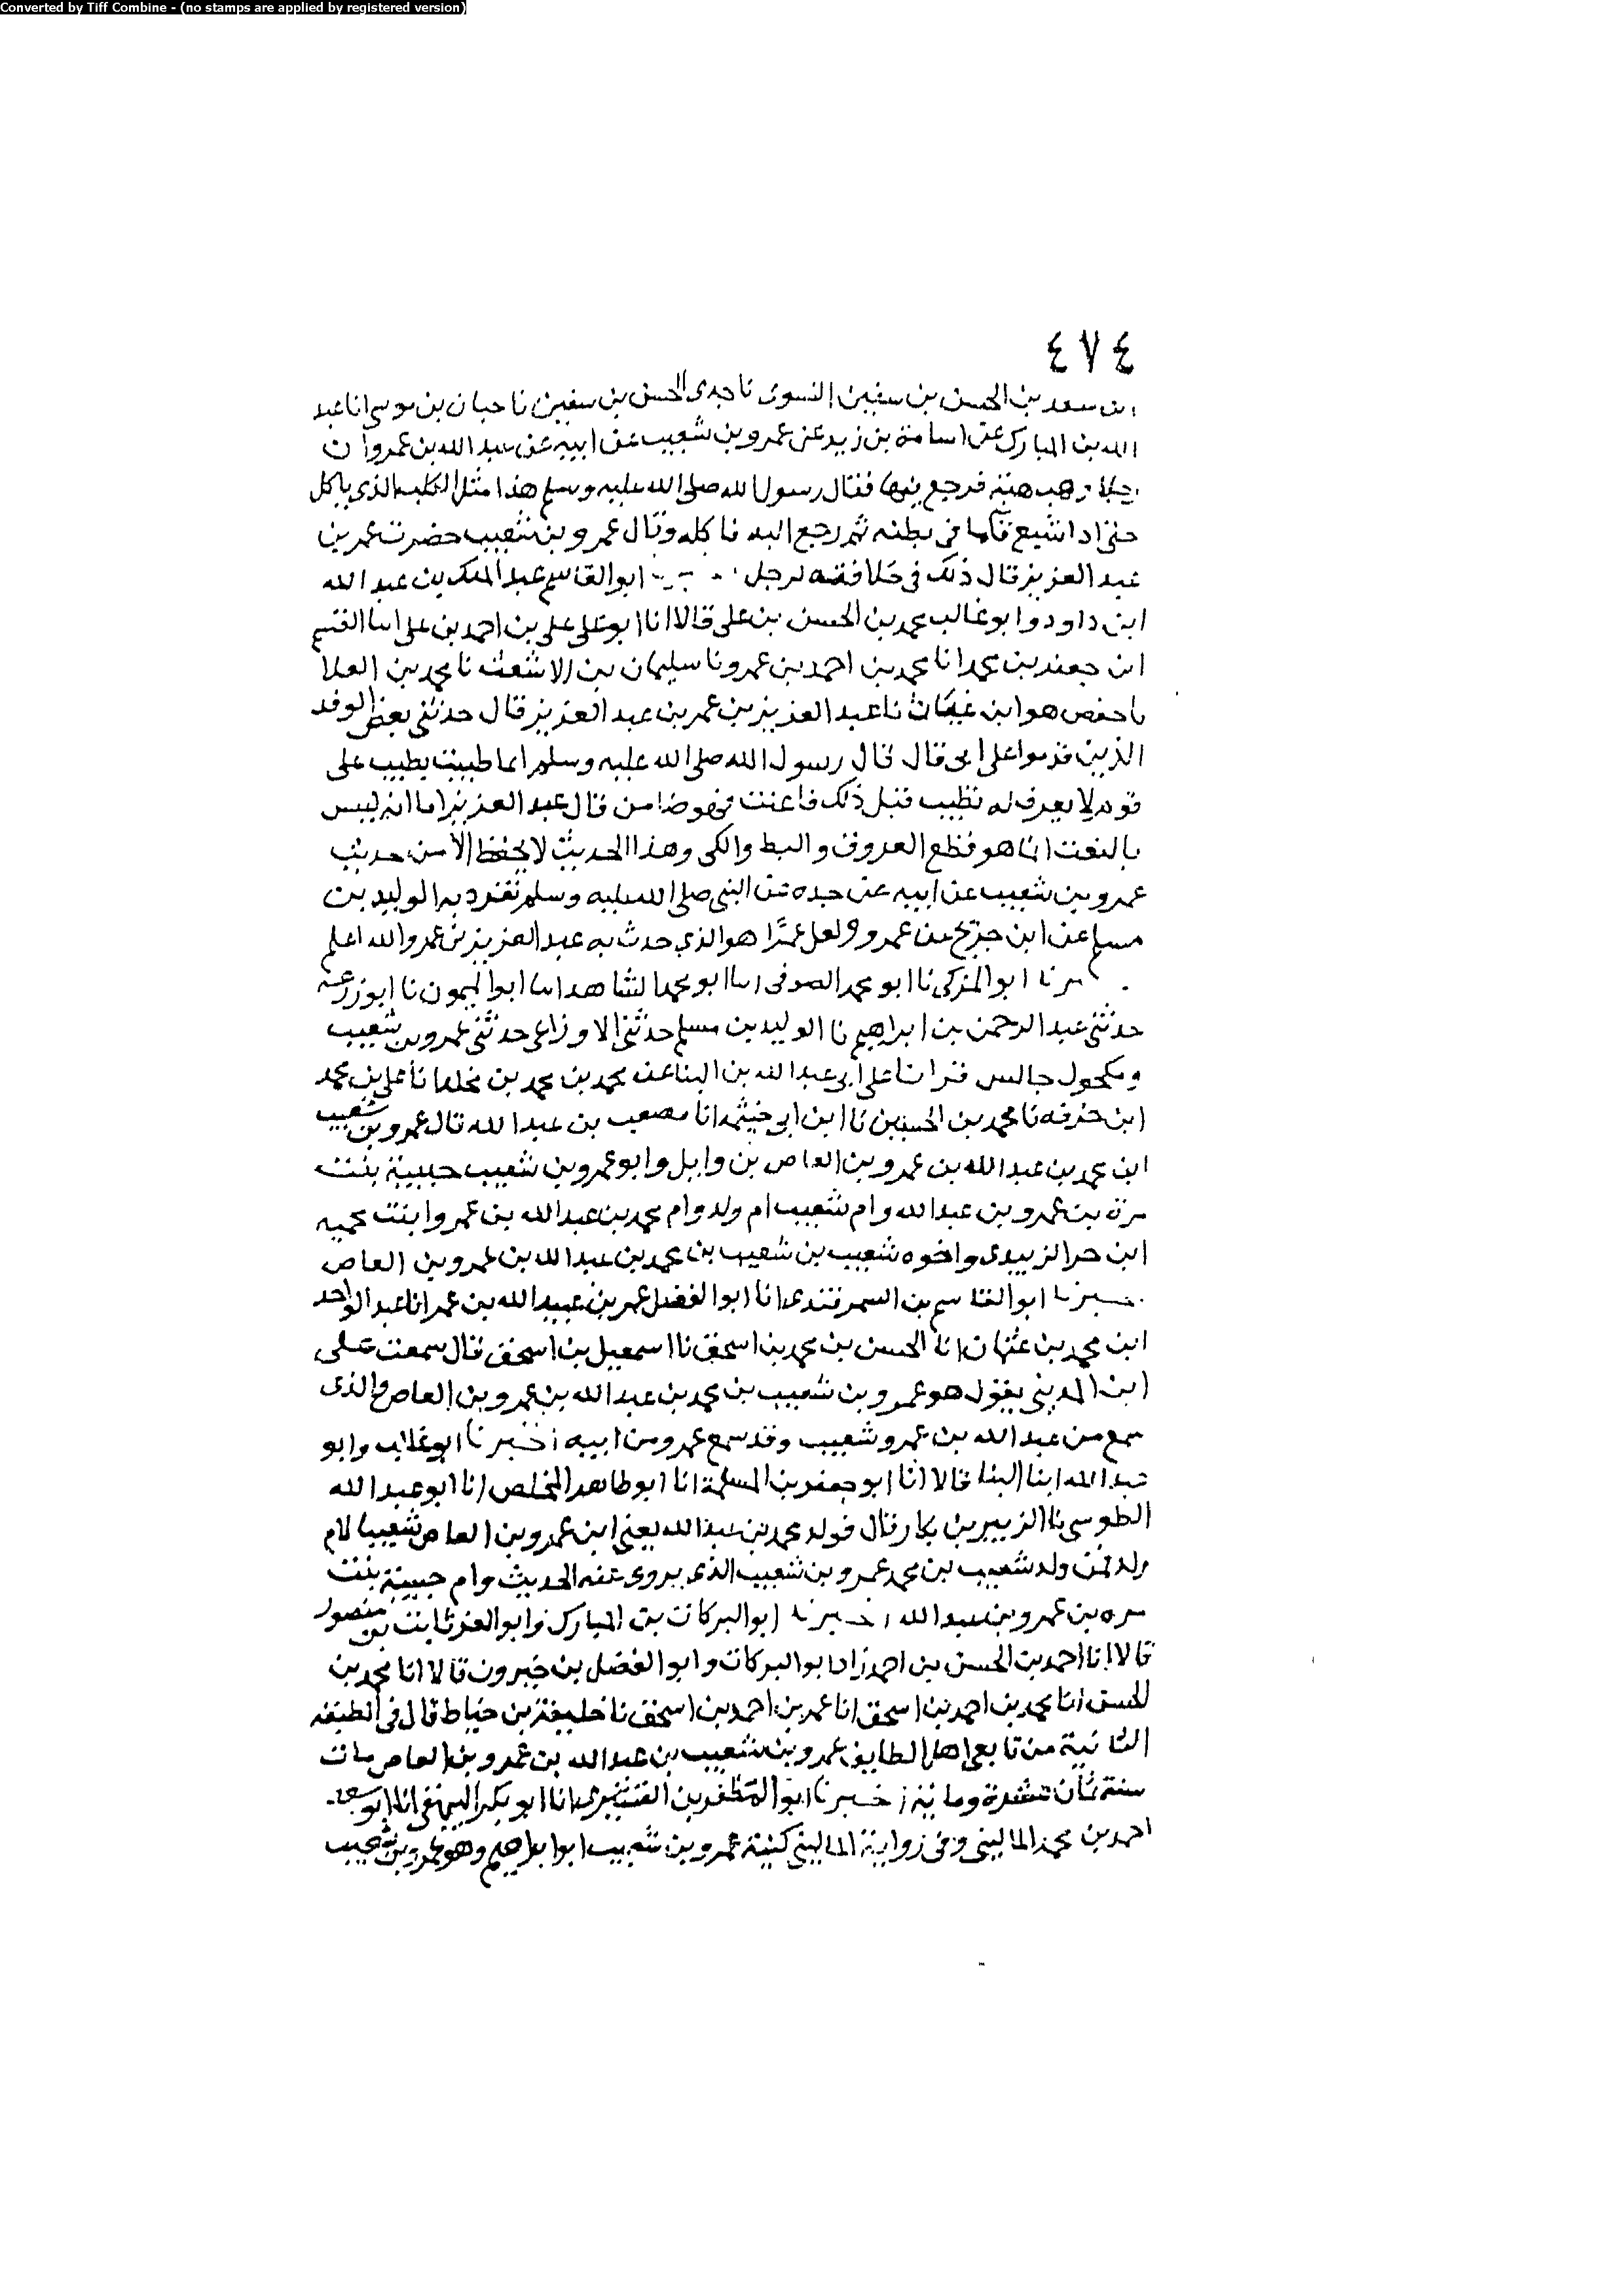 Converted by Tiff Combine - (no stamps are applied by registered version)
٤٧٤
ابن سعد بن الحسن بن سفين النسوى نا جدى الحسن بن سفين نا حبان بن موسى انا عبد
الله بن المبارك عن اسامة بن زيد عن عمرو بن شعيب عن ابيه عن عبد الله بن عمرو ان
رجلا وهب هبة فرجع فيها فقال رسول الله صلى الله عليه وسلم هذا مثل الكلب الذى ياكل
حتى اذا شبع قآ ما فى بطنه ثم رجع اليه فاكله وقال عمرو بن شعيب حضرت عمر بن
عبد العزيز قال ذلك فى خلافته لرجل ابو القاسم عبد الملك بن عبد الله
ابن داود وابو غالب محمد بن الحسن بن على قالا انا ابو على على بن احمد بن على انا القسم
ابن جعفر بن محمد انا محمد بن احمد بن عمرو نا سليمان بن الاشعث نا محمد بن العلا
نا حفص هو ابن غياث نا عبد العزيز بن عمر بن عبد العزيز قال حدثنى بعض الوفد
الذين قدموا على ابى قال قال رسول الله صلى الله عليه وسلم ايما طبيب يطبب على
قوم لا يعرف له تطبب قبل ذلك فاعنت فهو ضامن قال عبد العزيز اما انه ليس
بالنعت انما هو قطع العروق والبط والكى وهذا الحديث لا يحفظ الا من حديث
عمرو بن شعيب عن ابيه عن جده عن النبى صلى الله عليه وسلم تفرد به الوليد بن
مسلم عن ابن جريج عن عمرو ولعل عمرًا هو الذى حدث به عبد العزيز بن عمر والله اعلم
ابو المزكى نا ابو محمد الصوفى انا ابو محمد الشاهد انا ابو الميمون نا ابو زرعه
حدثنى عبد الرحمن بن ابراهيم نا الوليد بن مسلم حدثنى الاوزاعى حدثنى عمرو بن شعيب
ومكحول جالس قرانا على ابى عبد الله بن البنا عن محمد بن محمد بن مخلد انا على بن محمد
ابن خزفه نا محمد بن الحسين نا ابن ابى خيثمه انا مصعب بن عبد الله قال عمرو بن شعيب
ابن محمد بن عبد الله بن عمرو بن العاص بن وايل وابو عمرو بن شعيب حبيبة بنت
مرة بن عمرو بن عبد الله وام شعيب ام ولد وام محمد بن عبد الله بن عمرو ابنت محميه
ابن جز الزبيدى واخوه شعيب بن شعيب بن محمد بن عبد الله بن عمرو بن العاص
خبرنا ابو القاسم بن السمرقندى انا ابو الفضل عمر بن عبيد الله بن عمر انا عبد الواحد
ابن محمد بن عثمان انا الحسن بن محمد بن اسحق نا اسمعيل بن اسحق قال سمعت على
ابن المدينى يقول هو عمرو بن شعيب بن محمد بن عبد الله بن عمرو بن العاص والذى
سمع من عبد الله بن عمرو شعيب وقد سمع عمرو من ابيه اخبرنا ابو غالب وابو
عبد الله ابنا البنا قالا انا ابو جعفر بن المسلمة انا ابو طاهر المخلص انا ابو عبد الله
الطوسى نا الزبير بن بكار قال فولد محمد بن عبد الله يعنى ابن عمرو بن العاص شعيبا لام
ولد فمن ولد شعيب بن محمد عمرو بن شعيب الذى يروى عنه الحديث وام حبيبة بنت
مره بن عمرو بن عبد الله اخبرنا ابو البركات بن المبارك وابو العز ثابت بن منصور
قالا انا احمد بن الحسن بن احمد زاد ابو البركات وابو الفضل بن خيرون قالا انا محمد بن
الحسن انا محمد بن احمد بن اسحق انا عمر بن احمد بن اسحق نا خليفة بن خياط قال فى الطبقه
الثانية من تابعى اهل الطايف عمرو بن شعيب بن عبد الله بن عمرو بن العاص مات
سنة ثمان عشرة وماية اخبرنا ابو المظفر بن القشيرى انا ابو بكر البيهقى انا ابو سعد
احمد بن محمد المالينى وفى رواية المالينى كنية عمرو بن شعيب ابو ابراهيم وهو عمرو بن شعيب